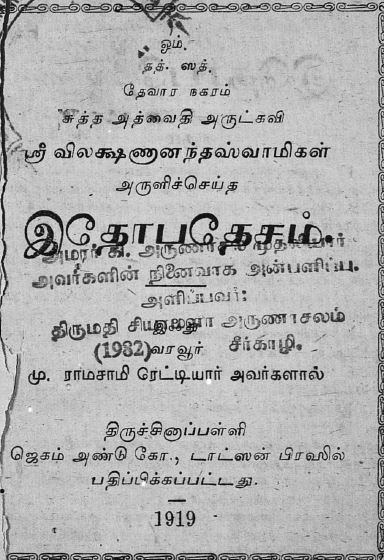 ஓம்.
தத். ஸத்.
தேவார நகரம்
சுத்த அத்வைதி அருட்கவி
ஸ்ரீ விலக்ஷணானந்தஸ்வாமிகள்
அருளிச்செய்த
இதோபதேசம்.
அமரர் கி. அருணாசல முதலியார்
அவர்களின் நினைவாக அன்பளிப்பு.
அளிப்பவர்:
திருமதி அருணாசலம்
(1982) வரவூர் சீர்காழி.
மு. ராமசாமி ரெட்டியார் அவர்களால்
திருச்சினாப்பள்ளி
ஜெகம் அண்டு கோ., டாட்ஸன் பிரஸில்
பதிப்பிக்கப்பட்டது.
1919